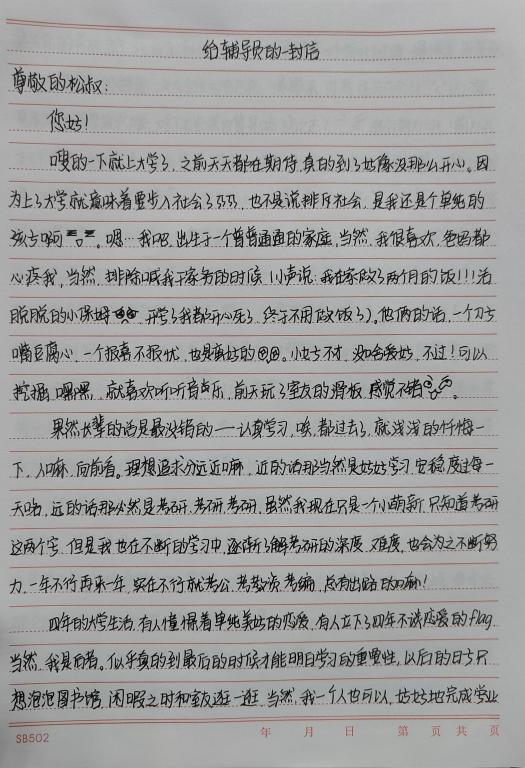 给辅导员的一封信
尊敬的松叔：
您好！
嗖的一下就上大学了，之前天天都在期待，真的到了好像没那么开心。因
为上了大学就意味着要步入社会了㞗㞗，也不是说排斥社会，是我还是个单纯的
孩子啊。嗯…我吧，出生于一个普普通通的家庭，当然，我很喜欢，爸妈都
心疼我，当然，排除喊我干家务的时候（小声说：我在家做了两个月的饭！！！活
脱脱的小保姆 开学了我都开心死了，终于不用做饭了）。他俩的话，一个刀子
嘴豆腐心，一个报喜不报忧，也是蛮好的。小女不才，没啥爱好，不过！可以
挖掘，嘿嘿，就喜欢听听音乐，前天玩了室友的滑板，感觉不错。
果然长辈的话是最没错的——认真学习，唉，都过去了，就浅浅的忏悔一
下，人嘛，向前看。理想追求分远近嘛，近的话那当然是好好学习，安稳度过每一
天咯，远的话那必然是考研，考研，考研，虽然我现在只是一个小萌新，只知道考研
这两个字，但是我也在不断的学习中，逐渐了解考研的深度，难度，也会为之不断努
力，一年不行再来一年，实在不行就考公，考教资，考编，总有出路的嘛！
四年的大学生活，有人憧憬着单纯美好的恋爱，有人立下了四年不谈恋爱的flag
当然，我是后者。似乎真的到最后的时候才能明白学习的重要性，以后的日子只
想泡泡图书馆，闲暇之时和室友逛一逛，当然，我一个人也可以，好好地完成学业
年 月 日 第 页 共 页
SB502